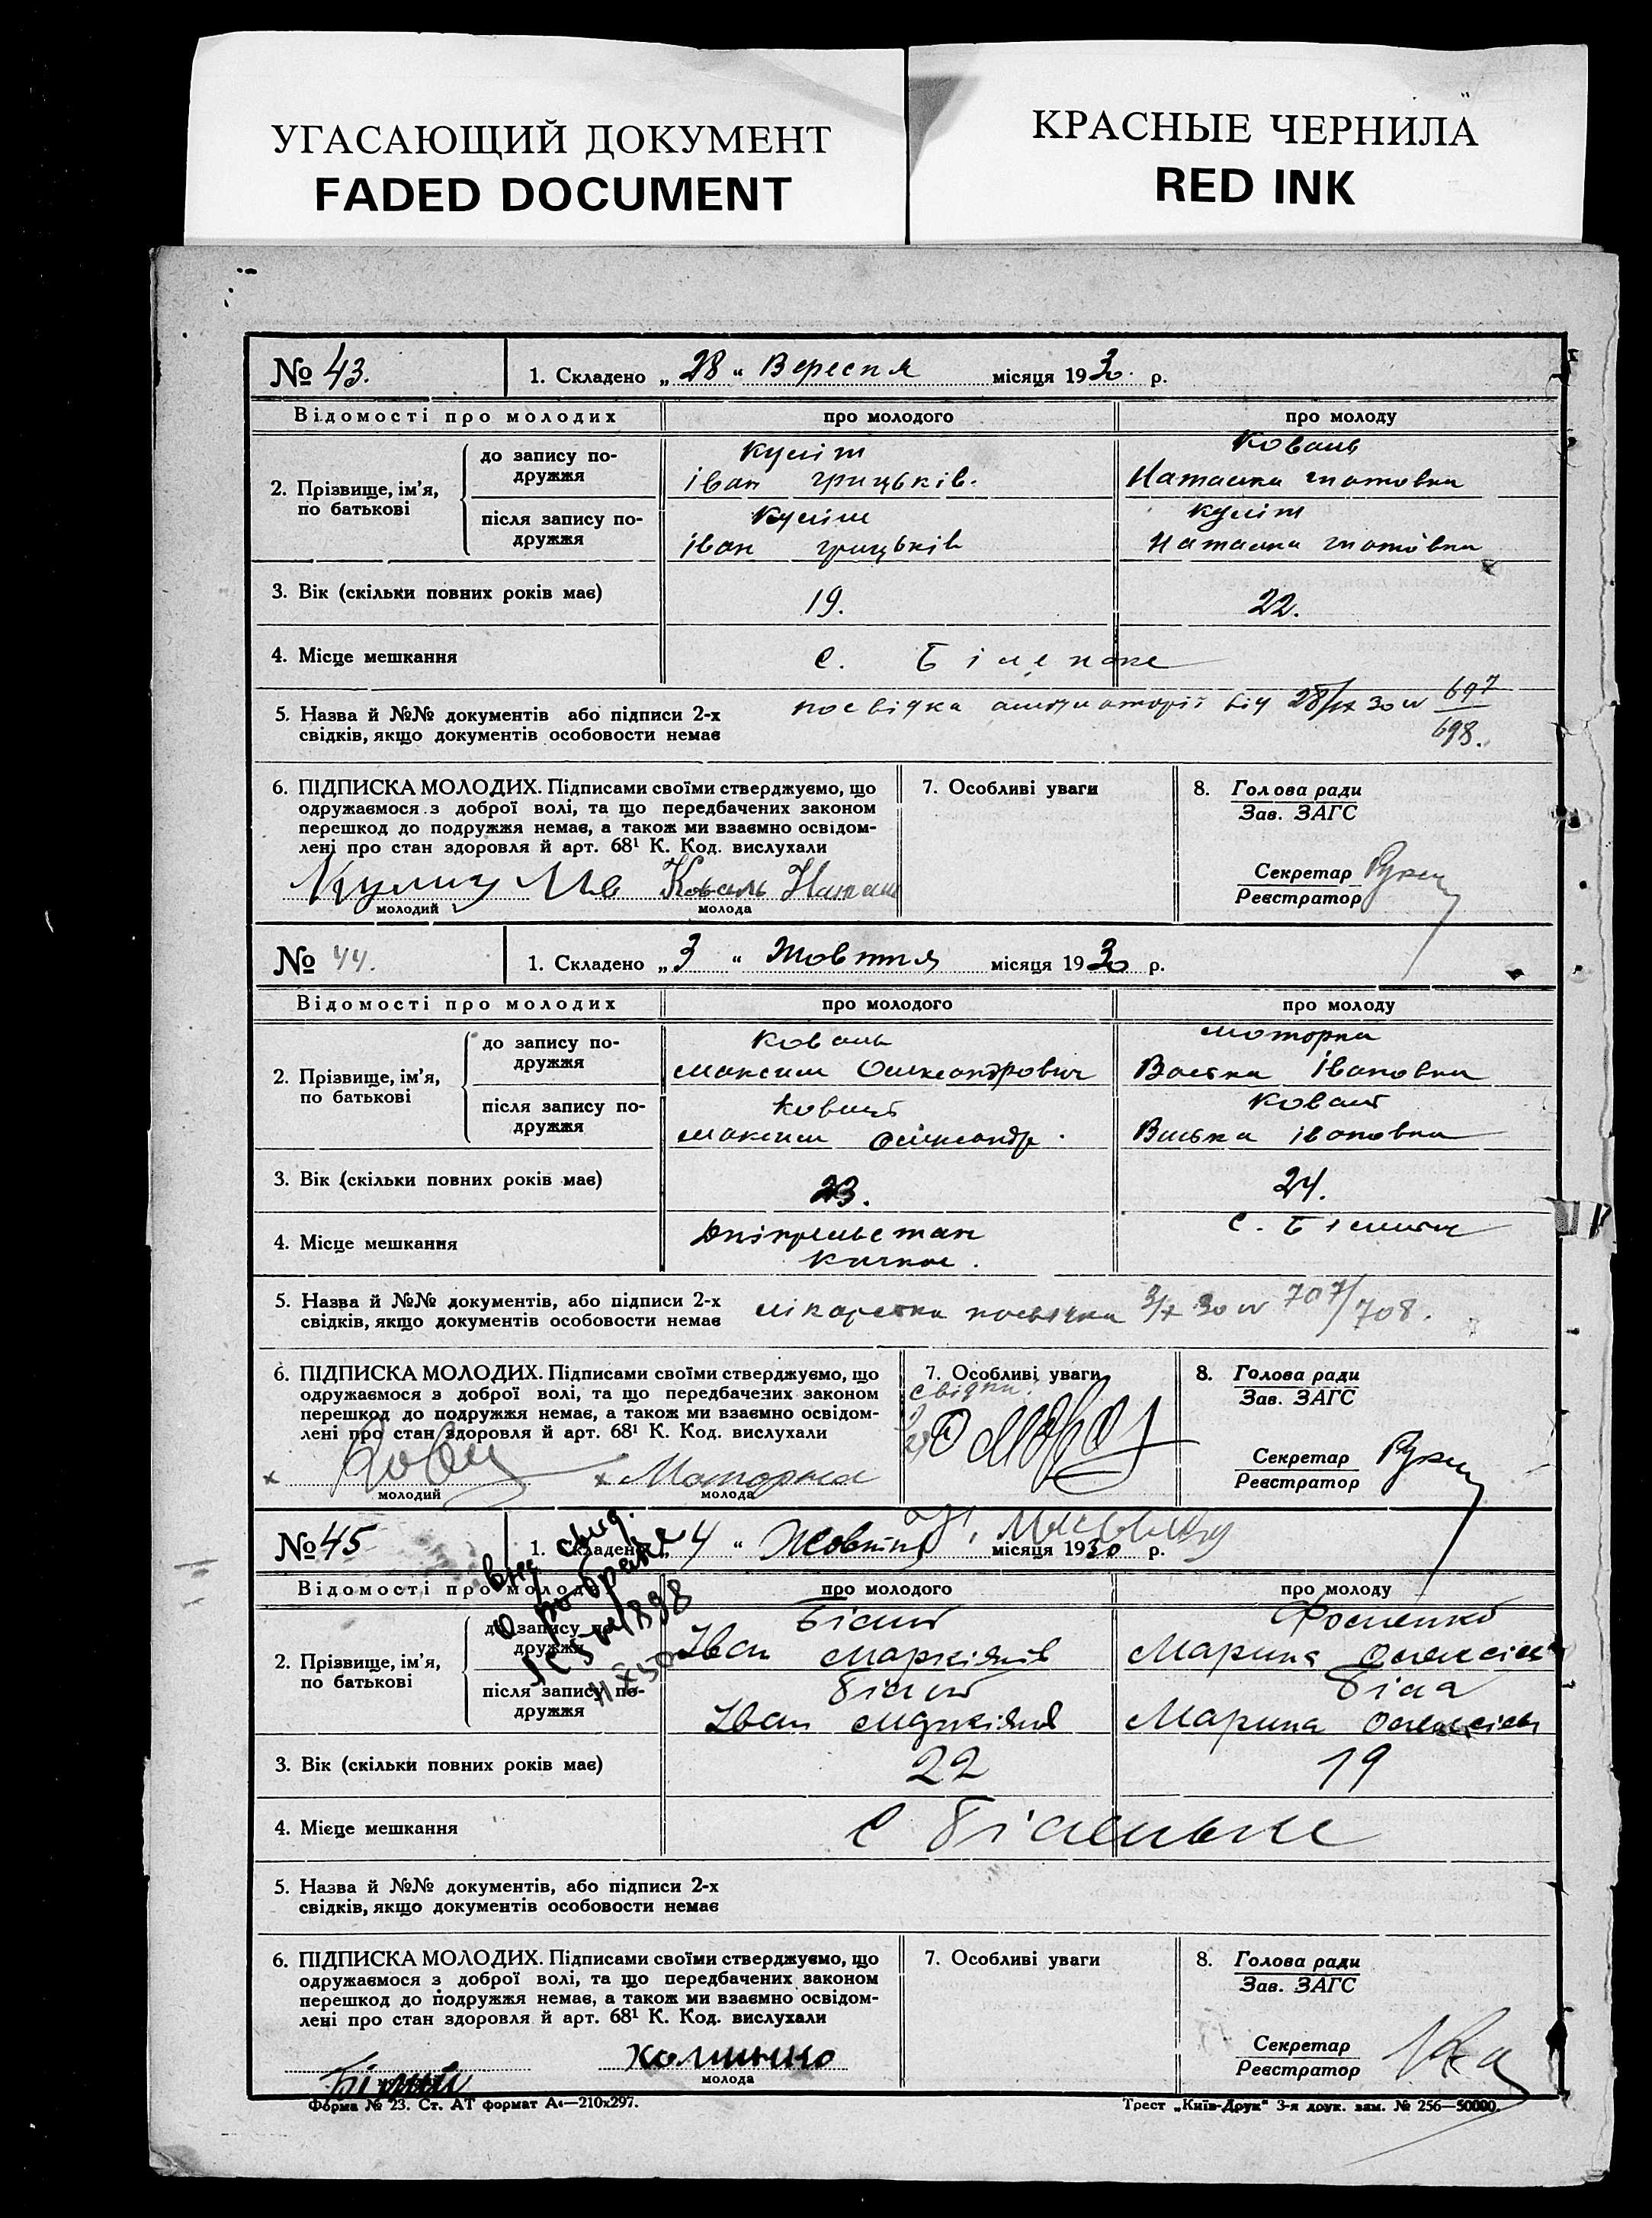 УГАСАЮЩИЙ ДОКУМЕНТ
FADED DOCUMENT
КРАСНЫЕ ЧЕРНИЛА
RED INK
№ 43. 1. Складено „ 28 “ Вересня місяця 1930. р.
Відомості про молодих про молодого про молоду
2. Прізвище, ім’я, по батькові
до запису подружжя
Іван Грицьків. Коваль
Наталка
після запису подружжя
Іван Грицьків
Наталка
3. Вік (скільки повних років має) 19. 22.
4. Місце мешкання с. Біленьке
5. Назва й №№ документів або підписи 2-х
свідків, якщо документів особовости немає
посвідка від 28/IX 30 № 697/698.
6. ПІДПИСКА МОЛОДИХ. Підписами своїми стверджуємо, що
одружаємося з доброї волі, та що передбачених законом
перешкод до подружжя немає, а також ми взаємно освідом-
лені про стан здоровля й арт. 68¹ К. Код. вислухали
Коваль Натал
молодий молода
7. Особливі уваги
8. Голова ради
Зав. ЗАГС
Секретар
Реєстратор
№ 44. 1. Складено „ 3 “ Жовтня місяця 1930 р.
Відомості про молодих про молодого про молоду
2. Прізвище, ім’я, по батькові
до запису подружжя
Коваль
Максим Олександрович
Моторна
Васька Івановна
після запису подружжя
Коваль
Максим Олександр.
Коваль
Васька Івановна
3. Вік (скільки повних років має) 23. 24.
4. Місце мешкання
с.
5. Назва й №№ документів, або підписи 2-х
свідків, якщо документів особовости немає
лікарська посвідка 3/X 30 № 707/708.
6. ПІДПИСКА МОЛОДИХ. Підписами своїми стверджуємо, що
одружаємося з доброї волі, та що передбачених законом
перешкод до подружжя немає, а також ми взаємно освідом-
лені про стан здоровля й арт. 68¹ К. Код. вислухали
х х Моторна
молодий молода
7. Особливі уваги
Свідки:
8. Голова ради
Зав. ЗАГС
Секретар
Реєстратор
№ 45 1. Складено „ 4 “ Жовтня місяця 1930 р.
Відомості про молодих про молодого про молоду
2. Прізвище, ім’я, по батькові
до запису подружжя
Білий
Іван Маркіянів
Марина Олексіев
після запису подружжя
Білий
Іван Маркіянів
Біла
Марина Олексіев
3. Вік (скільки повних років має) 22 19
4. Місце мешкання с Біленьке
5. Назва й №№ документів, або підписи 2-х
свідків, якщо документів особовости немає
6. ПІДПИСКА МОЛОДИХ. Підписами своїми стверджуємо, що
одружаємося з доброї волі, та що передбачених законом
перешкод до подружжя немає, а також ми взаємно освідом-
лені про стан здоровля й арт. 68¹ К. Код. вислухали
Білий
молода
7. Особливі уваги
8. Голова ради
Зав. ЗАГС
Секретар
Реєстратор
Форма № 23. Ст. АТ формат А₄—210х297.
Трест „Київ-Друк“ 3-я друк. зам. № 256—50000.